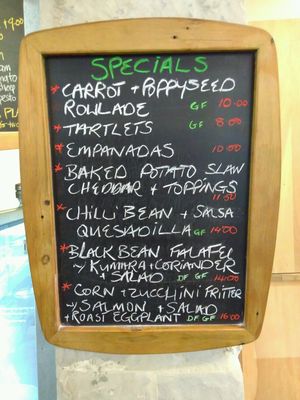 SPECIALS
* CARROT + POPPYSEED
ROULADE GF 10.00
* TARTLETS GF 8.00
* EMPANADAS 10.00
* BAKED POTATO SLAW
CHEDDAR + TOPPINGS
11.50
* CHILLI BEAN + SALSA
QUESADILLA GF 14.00
* BLACK BEAN FALAFEL
w KUMARA + CORIANDER
+ SALAD DF GF 14.00
* CORN + ZUCCHINI FRITTER
w SALMON + SALAD
+ ROAST EGGPLANT DF GF 16.00